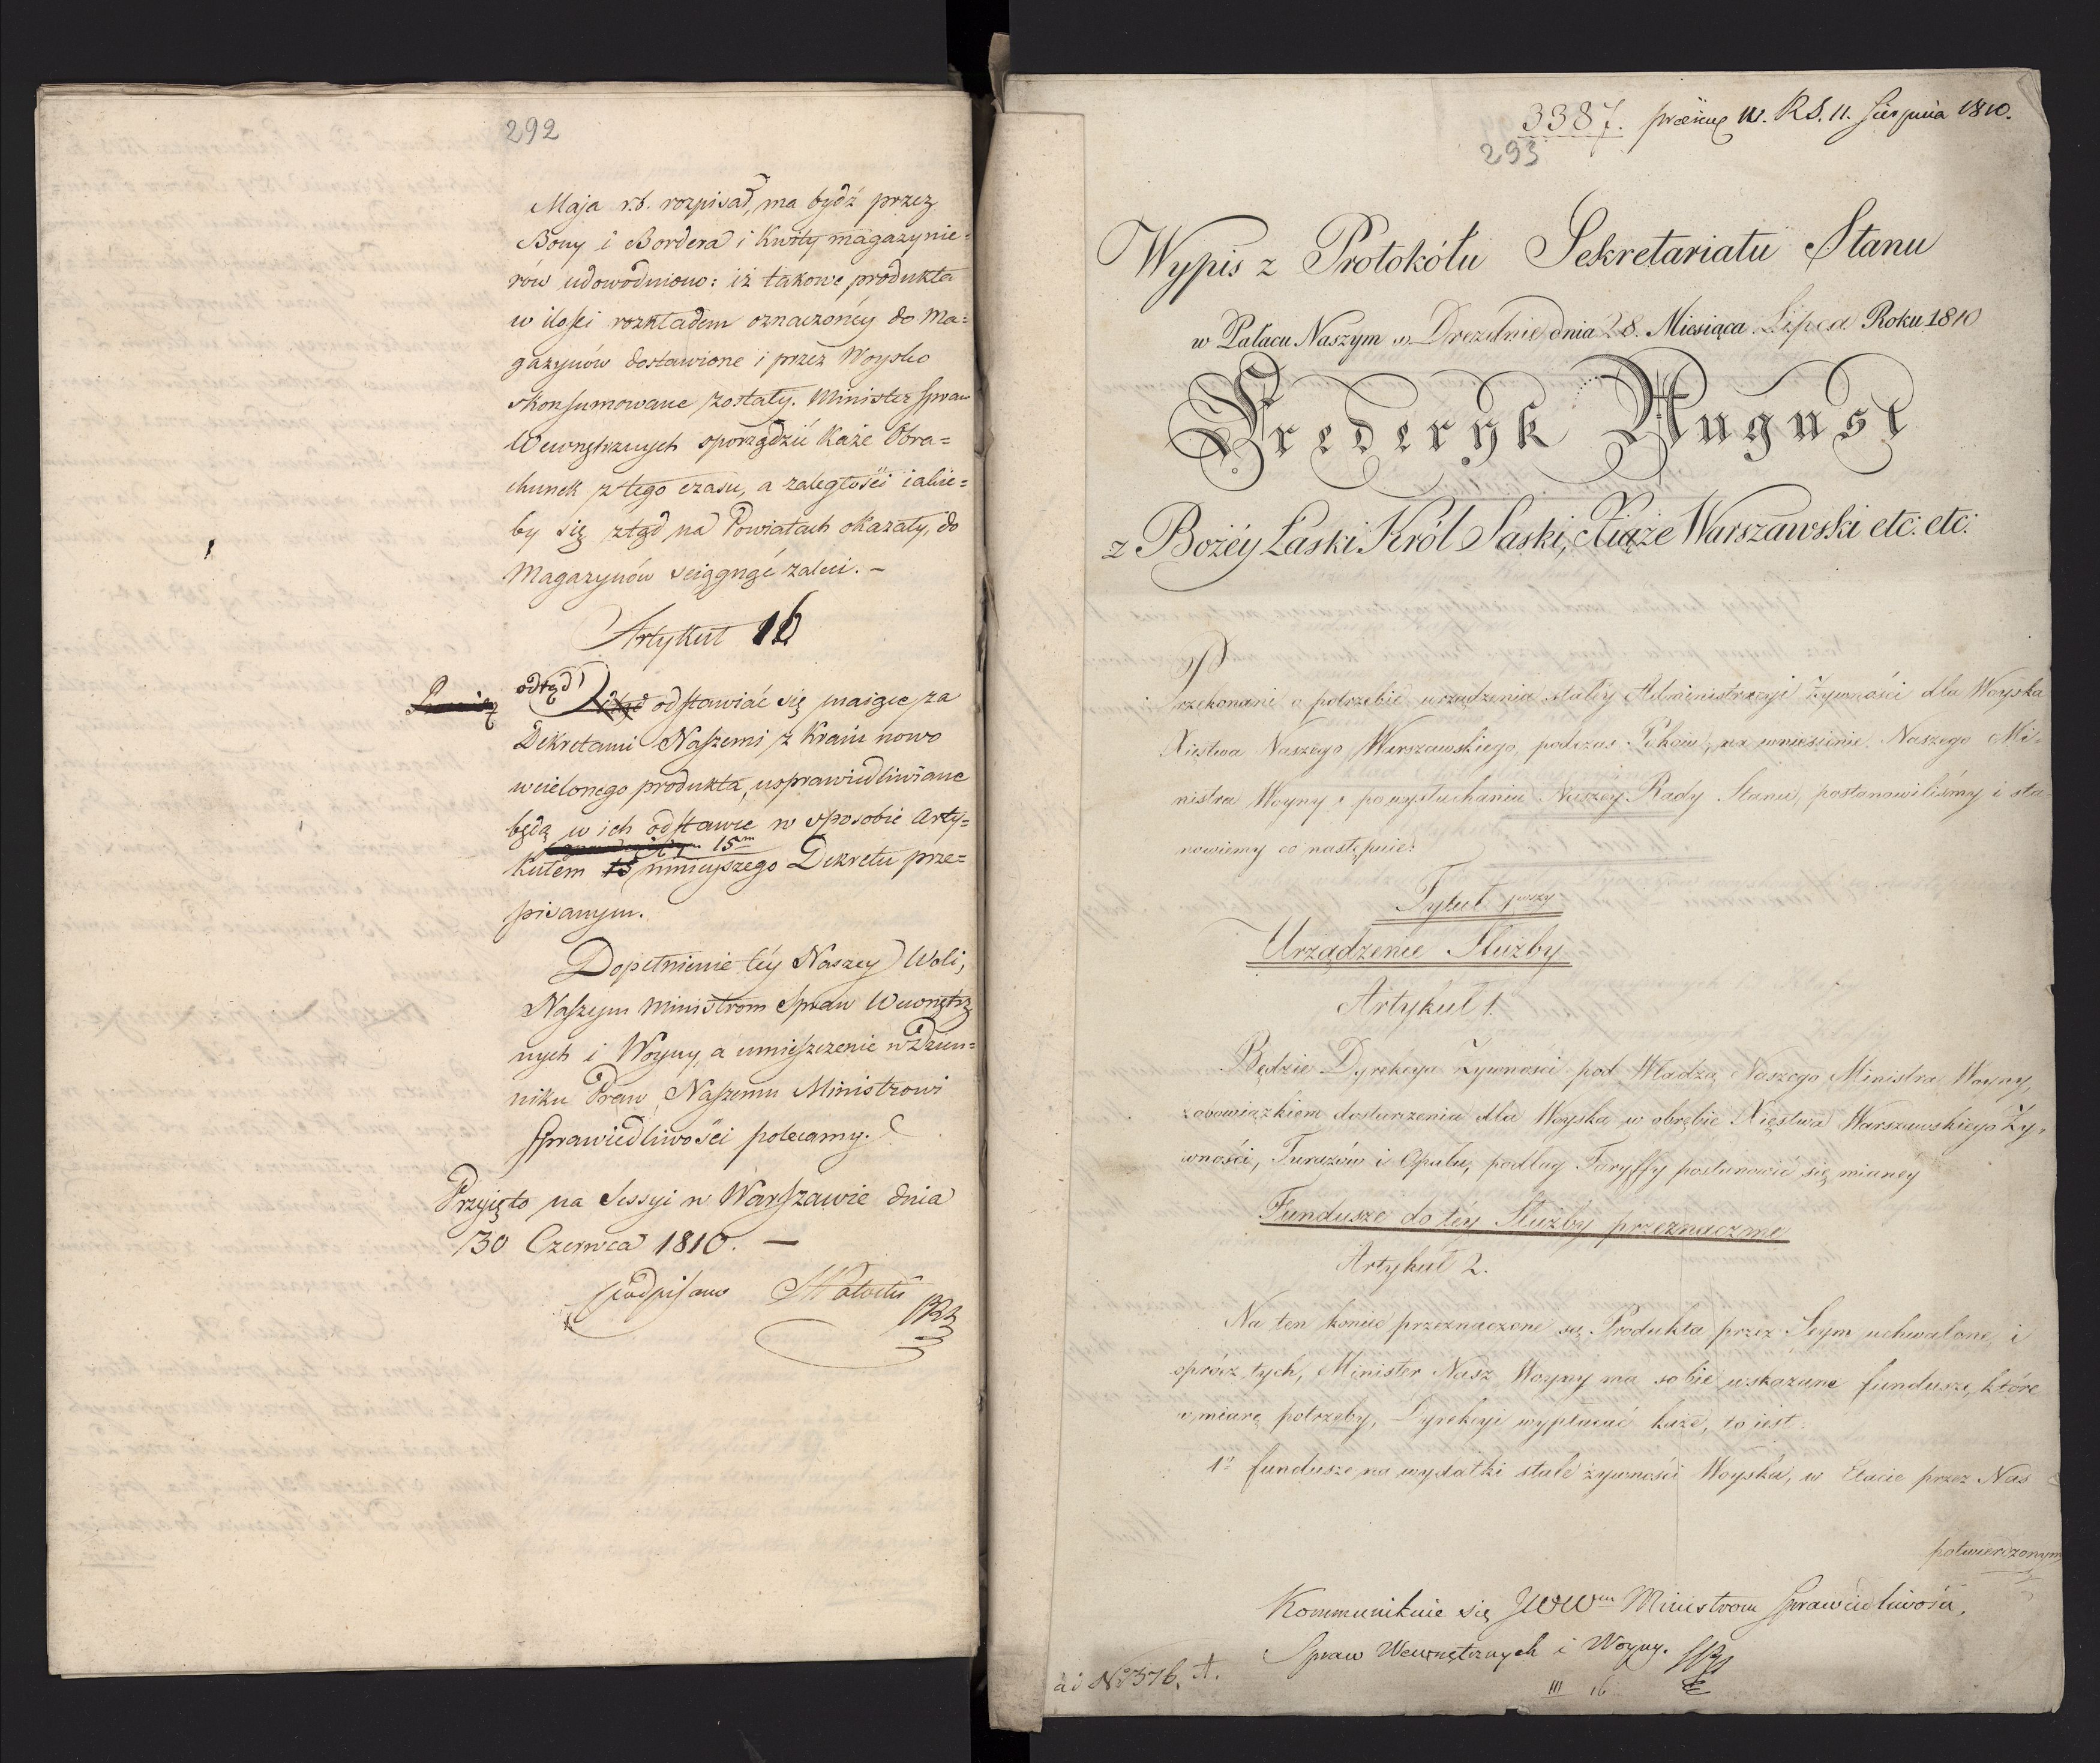 292
Maja r.b. rozpisał, ma bydź przez
Bony i Bordera i Kwity magazynie=
rów udowodniono: iż takowe produkta
w ilości rozkładem oznaczonéy do Ma=
gazynów dostawione i przez Woysko
skonsumowane zostały. Minister Spraw
Wewnętrznych sporządzić każe Obra=
chunek z tego czasu, a zaległości iakie=
by się ztąd na Powiatach okazały, do
Magazynów sciągnąć zaleci. –
Artykuł 16
odtąd
odstawiać się maiące za
Dekretami Naszemi z Kraiu nowo
wcielonego produkta, usprawiedliwiane
będą w ich odstawie w sposobie Arty=
15m
kułem 15 ninieyszego Dekretu prze=
pisanym.
Dopełnienie téy Naszey Woli,
Naszym Ministrom Spraw Wewnętrz
nych i Woyny, a umieszczenie w Dzien=
niku Praw, Naszemu Ministrowi
Sprawiedliwości polecamy.
Przyięto na Sessyi w Warszawie dnia
30 Czerwca 1810. —
podpisano
3387. W. R.S. 11. Sierpnia 1810.
293
Wypis z Protokółu Sekretariatu Stanu
w Pałacu Naszym w Dreznie dnia 28. Miesiąca Lipca Roku 1810
Frederyk August
z Bożéy Łaski Król Saski, Xiąże Warszawski etc: etc:
Przekonani o potrzebie urządzenia stałéy Administracyi Żywności dla Woyska
Xięstwa Naszego Warszawskiego, podczas Pokoiu, na wniesienie Naszego Mi=
nistra Woyny i po wysłuchaniu Naszey Rady Stanu, postanowiliśmy i sta=
nowiemy co następuie:
Tytuł 1wszy
Urządzenie Służby
Artykuł 1.
Będzie Dyrekcya Żywności pod Władzą Naszego Ministra Woyny,
z obowiązkiem dostarczenia dla Woyska w obrębie Xięstwa Warszawskiego Ży=
wności, Furażów i Opału, podług Taryffy postanowić się mianéy
Fundusze do téy Służby przeznaczone
Artykuł 2.
Na ten koniec przeznaczone są Produkta przez Seym uchwalone, i
oprócz tych, Minister Nasz Woyny ma sobie wskazane fundusze, które
w miarę potrzeby, Dyrekcyi wypłacać każe, to iest:
1o fundusze na wydatki stałé żywności Woyska, w Etacie przez Nas
potwierdzonym
Kommunikuie się JWWm Ministrom Sprawiedliwości,
Spraw Wewnętrznych i Woyny.
ad No 1376. A.
III 16